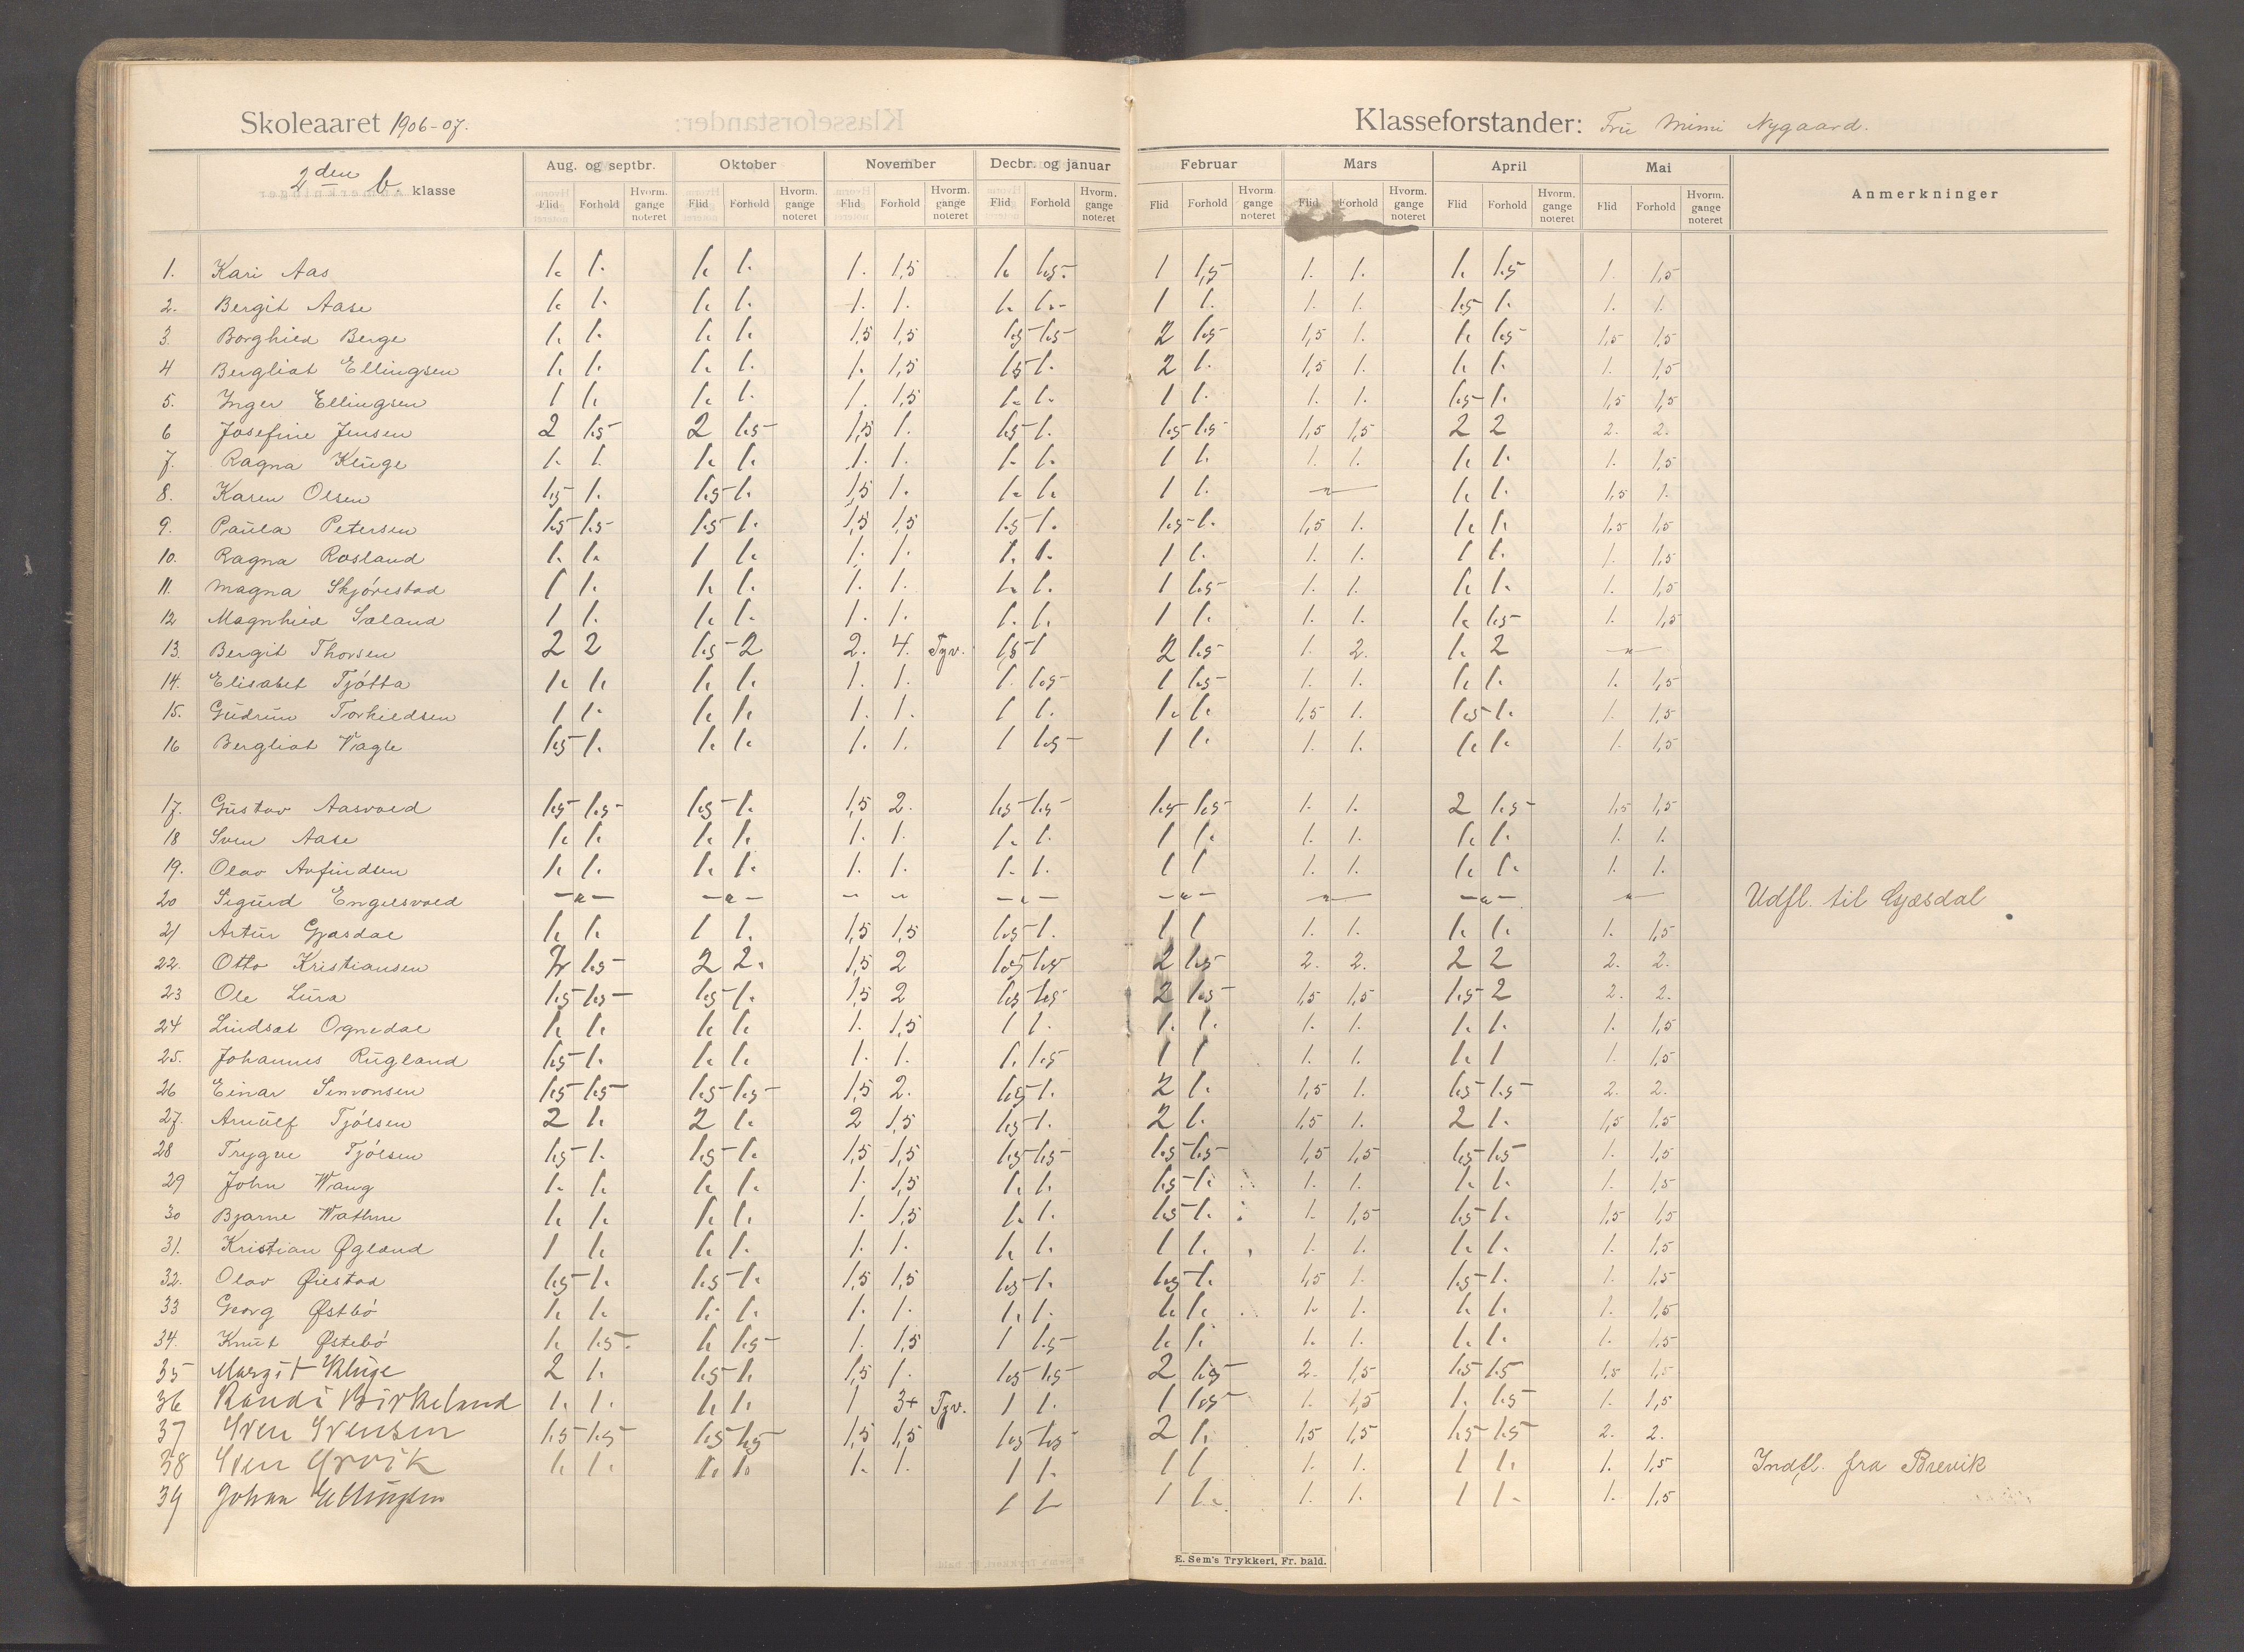 Skoleaaret 1906-07.
Klasseforstander: Fru Mimi Nygaard.
2den b. klasse
Aug. og septbr. Oktober November Decbr. og januar Februar Mars April Mai
Flid Forhold Hvorm. gange noteret Flid Forhold Hvorm. gange noteret Flid Forhold Hvorm. gange noteret Flid Forhold Hvorm. gange noteret Flid Forhold Hvorm. gange noteret Flid Forhold Hvorm. gange noteret Flid Forhold Hvorm. gange noteret Flid Forhold Hvorm. gange noteret Anmerkninger
1. Kari Aas 1. 1. 1. 1. 1. 1,5 1. 1.5 1 1,5 1. 1. 1. 1.5 1. 1,5
2. Bergit Aase 1. 1. 1. 1. 1. 1. 1. 1. 1 1. 1. 1. 1.5 1. 1. 1.
3. Borghild Berge 1. 1. 1. 1. 1,5 1,5 1.5 1.5 2 1.5 1,5 1. 1. 1.5 1,5 1,5
4 Bergliot Ellingsen 1. 1. 1. 1. 1. 1,5 1.5 1. 2 1. 1,5 1. 1. 1. 1. 1,5
5. Inger Ellingsen 1 1. 1. 1. 1. 1,5 1. 1. 1 1. 1. 1. 1.5 1. 1,5 1,5
6 Josefine Jensen 2 1.5 2 1.5 1,5 1. 1.5 1. 1.5 1.5 1,5 1,5 2 2 2. 2.
7. Ragna Kluge 1. 1. 1. 1. 1. 1. 1. 1. 1 1. 1. 1. 1. 1. 1. 1,5
8. Karen Olsen 1.5 1. 1.5 1. 1,5 1. 1. 1. 1 1. — " — 1. 1. 1,5 1.
9. Paula Petersen 1.5 1.5 1.5 1. 1,5 1,5 1.5 1. 1.5 1. 1,5 1. 1. 1. 1,5 1,5
10. Ragna Rosland 1. 1. 1 1. 1. 1. 1. 1. 1 1. 1. 1. 1 1. 1. 1,5
11. Magna Skjórestad 1 1. 1. 1. 1. 1. 1. 1. 1 1.5 1. 1. 1. 1. 1. 1,5
12 Magnhild Sæland 1 1. 1. 1. 1. 1. 1. 1. 1 1. 1. 1. 1. 1.5 1. 1,5
13. Bergit Thorsen 2 2 1.5 2 2. 4. Tyv. 1.5 1 2 1.5 1. 2. 1. 2 — " —
14. Elisabet Tjótta 1. 1. 1. 1. 1. 1. 1. 1.5 1 1.5 1. 1. 1. 1. 1. 1,5
15. Gudrun Torkildsen 1 1. 1. 1. 1. 1. 1 1. 1. 1. 1,5 1. 1.5 1. 1. 1,5
16 Bergliot Vagle 1.5 1. 1. 1. 1. 1. 1 1.5 1 1. 1. 1. 1. 1. 1. 1,5
17. Gustav Aasvold 1.5 1.5 1.5 1. 1,5 2. 1.5 1.5 1.5 1.5 1. 1. 2 1.5 1,5 1,5
18 Sven Aase 1. 1. 1. 1. 1. 1. 1. 1. 1 1. 1. 1. 1. 1. 1. 1.
19. Olav Avfindsen 1. 1. 1. 1. 1. 1. 1. 1. 1 1 1. 1. 1. 1. 1. 1.
20 Sigurd Engelsvold — " — — " — — — — " — — " — — " — — " — — " — Udfl. til Gjæsdal
21 Artur Gjasdal 1. 1. 1 1. 1,5 1,5 1.5 1. 1 1 1. 1. 1. 1. 1. 1,5
22. Otto Kristiansen 2 1.5 2 2. 1,5 2 1.5 1.5 2 1.5 2. 2. 2 2 2. 2.
23 Ole Lura 1.5 1.5 1.5 1. 1,5 2 1.5 1.5 2 1.5 1,5 1,5 1.5 2 2. 2.
24 Lindsat Ognedal 1. 1. 1. 1. 1. 1,5 1 1. 1. 1. 1. 1. 1. 1. 1. 1,5
25. Johannes Rugland 1.5 1. 1. 1. 1. 1. 1. 1.5 1 1 1. 1. 1. 1 1. 1,5
26 Einar Simonsen 1.5 1.5 1.5 1.5 1,5 2. 1.5 1. 2 1. 1,5 1. 1.5 1.5 2. 2.
27. Arnulf Tjólsen 2 1. 2 1. 2 1,5 1.5 1. 2 1. 1,5 1. 2 1. 1,5 1,5
28 Trygve Tjólsen 1.5 1. 1.5 1. 1,5 1,5 1.5 1.5 1.5 1.5 1,5 1,5 1.5 1.5 1. 1,5
29 John Waug 1. 1. 1. 1. 1. 1,5 1. 1. 1.5 1. 1. 1. 1. 1. 1. 1,5
30 Bjarne Wathne 1. 1. 1. 1. 1. 1,5 1. 1. 1.5 1. 1. 1,5 1.5 1. 1,5 1,5
31. Kristian Øgland 1 1. 1. 1. 1. 1. 1. 1. 1 1. 1. 1. 1. 1. 1. 1,5
32. Olav Øiestad 1.5 1. 1.5 1. 1,5 1,5 1.5 1. 1.5 1. 1,5 1. 1.5 1. 1. 1,5
33 Georg Østbó 1. 1. 1. 1. 1. 1. 1. 1. 1. 1. 1. 1. 1. 1. 1. 1,5
34. Knut Østebó 1. 1.5 1. 1.5 1. 1,5 1 1.5 1. 1. 1. 1. 1. 1. 1. 1,5
35 Margit Kluge 2 1. 1.5 1. 1,5 1. 1.5 1.5 2 1.5 2. 1,5 1.5 1.5 1,5 1,5
36 Randi Birkeland 1. 1. 1. 1. 1 3+ Tyv. 1 1. 1 1.5 1. 1,5 1. 1.5 1. 1,5
37 Sven Svensen 1.5 1.5 1.5 1.5 1,5 1,5 1.5 1.5 2 1. 1,5 1,5 1.5 1.5 2. 2.
38 Sven Ørvik 1. 1. 1. 1. 1. 1. 1 1. 1 1 1. 1. 1 1. 1. 1,5 Indfl. fra Brevik
39 Johan Ellingsen 1 1 1 1. 1. 1. 1 1. 1. 1,5
E. Sem's Trykkeri, Fr. hald.